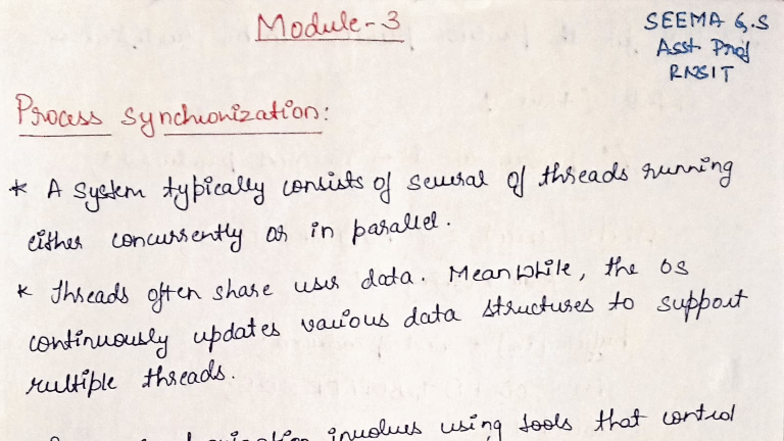 Module-3
SEEMA G.S
Asst Prof
RNSIT
Process Synchronization:
* A System typically consists of several of threads running
either concurrently or in parallel.
* Threads often share user data. Meanwhile, the OS
continuously updates various data structures to support
multiple threads.
involves using tools that control